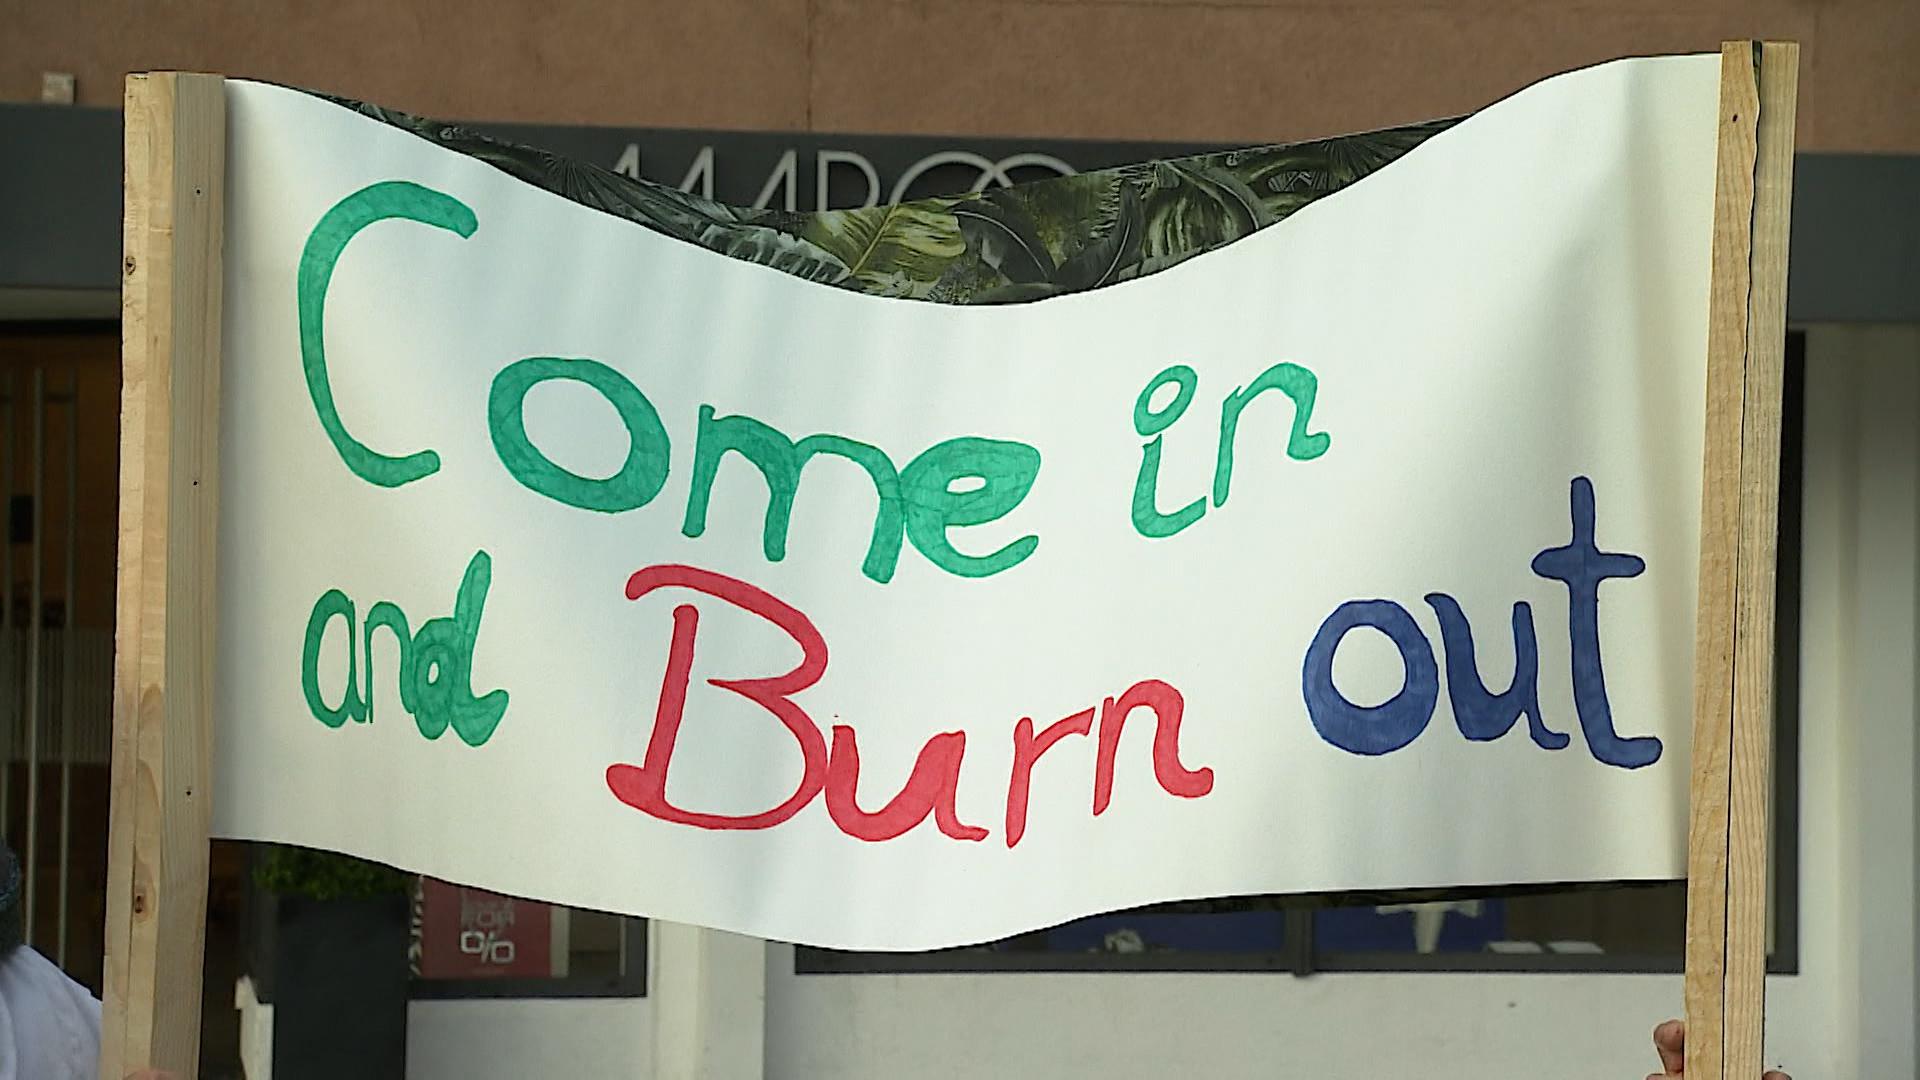 Come in
and Burn out
FOR
%